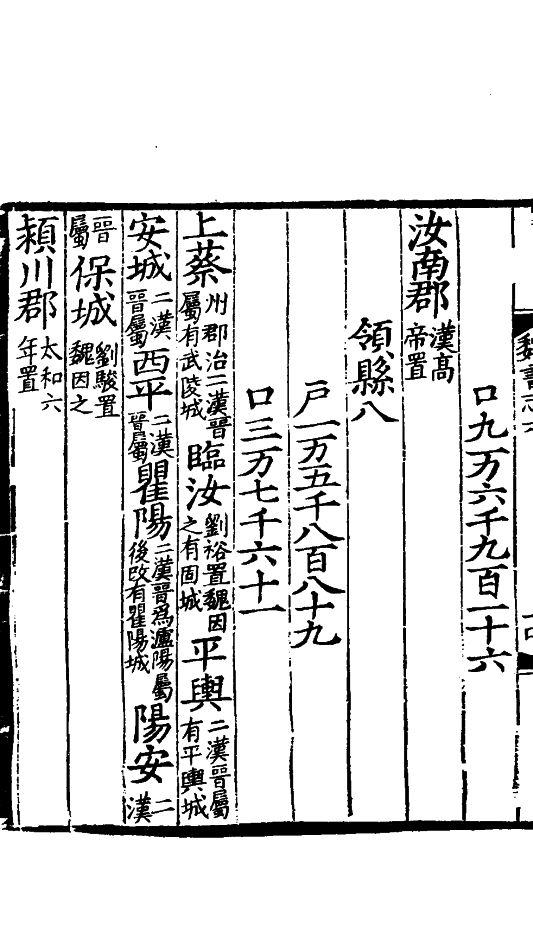 魏書志
口九万六千九百一十六
汝南郡漢高帝置
領縣八
戶一万五千八百八十九
口三万七千六十一
上蔡州郡治二漢晉屬有武陵城臨汝劉裕置魏因之有固城平輿二漢晉屬有平輿城
安城二漢晉屬西平二漢晉屬瞿陽二漢晉爲灈陽屬後改有瞿陽城陽安二漢
晉屬保城劉駿置魏因之
潁川郡太和六年置